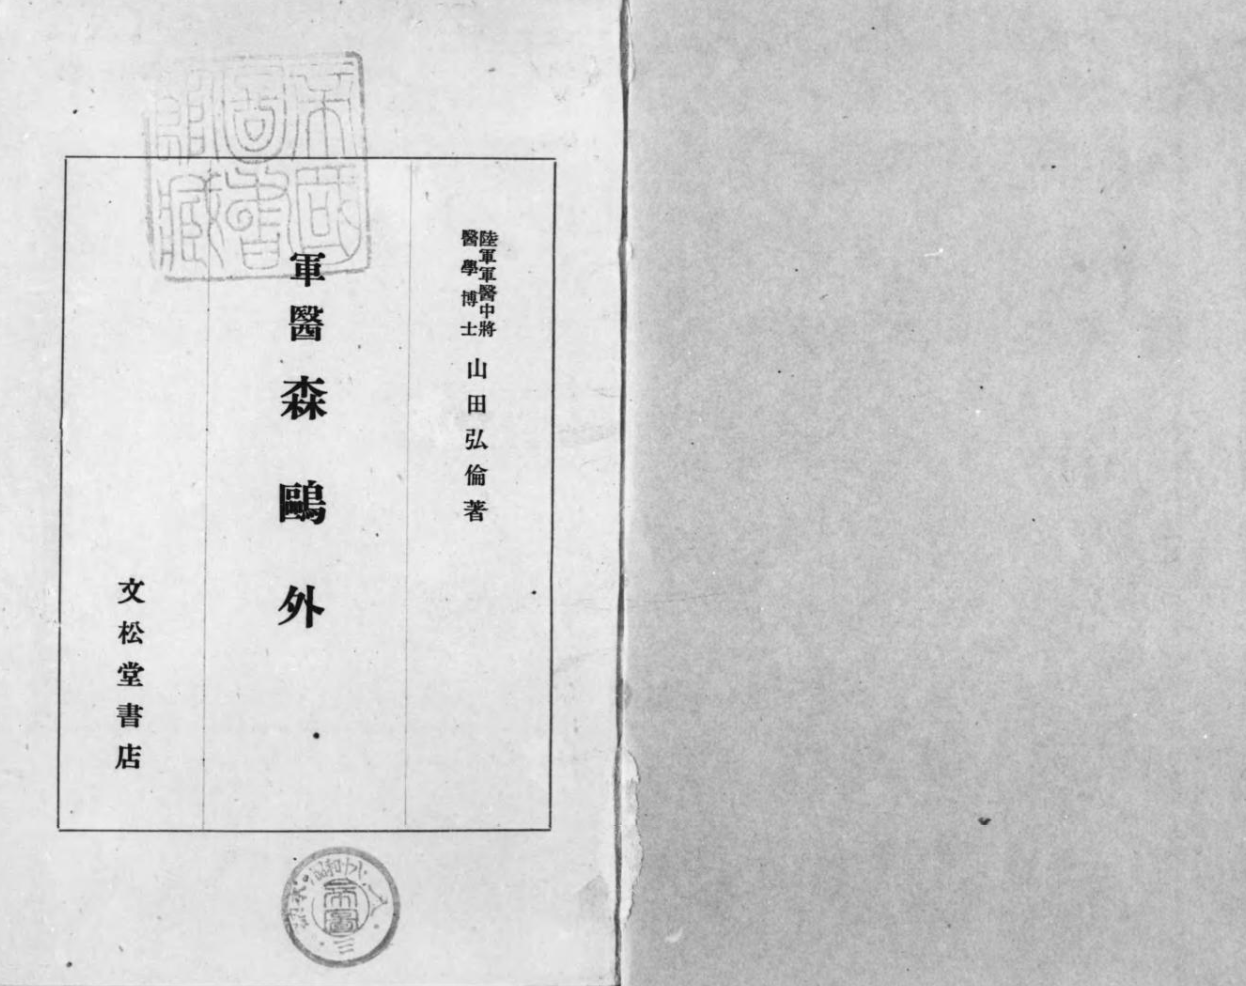 陸軍軍醫中將
醫學博士
山田弘倫著
軍醫森鷗外
文松堂書店
帝國圖書館藏